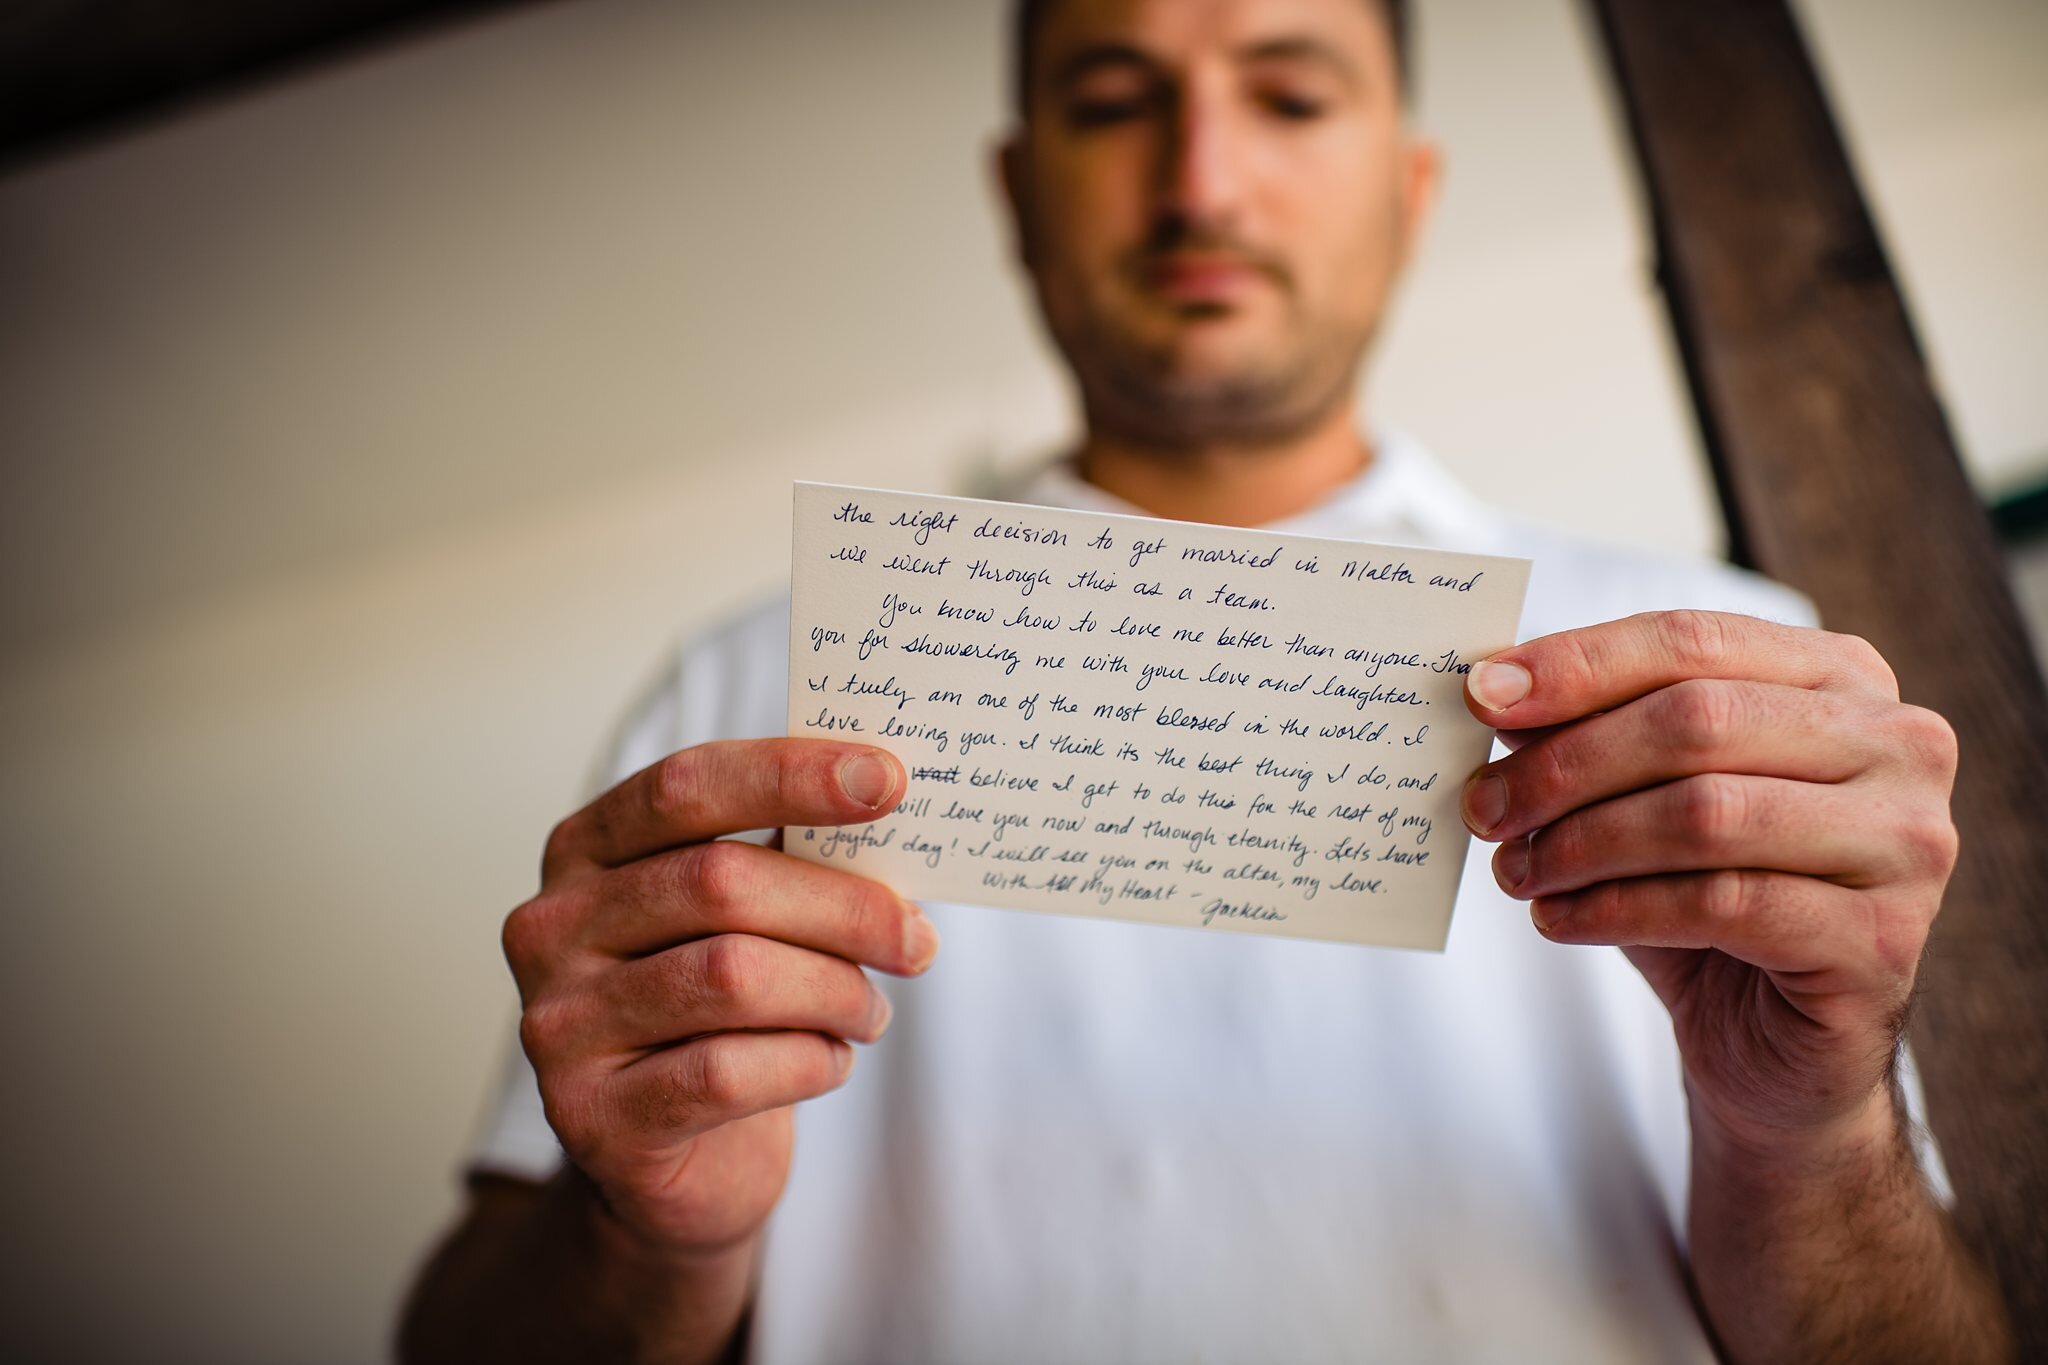 the right decision to get married in Malta and
we went through this as a team.
You know how to love me better than anyone. Tha
you for showering me with your love and laughter.
I truly am one of the most blessed in the world. I
love loving you. I think its the best thing I do, and
wait believe I get to do this for the rest of my
will love you now and through eternity. Lets have
a joyful day! I will see you on the alter, my love.
With All My Heart -